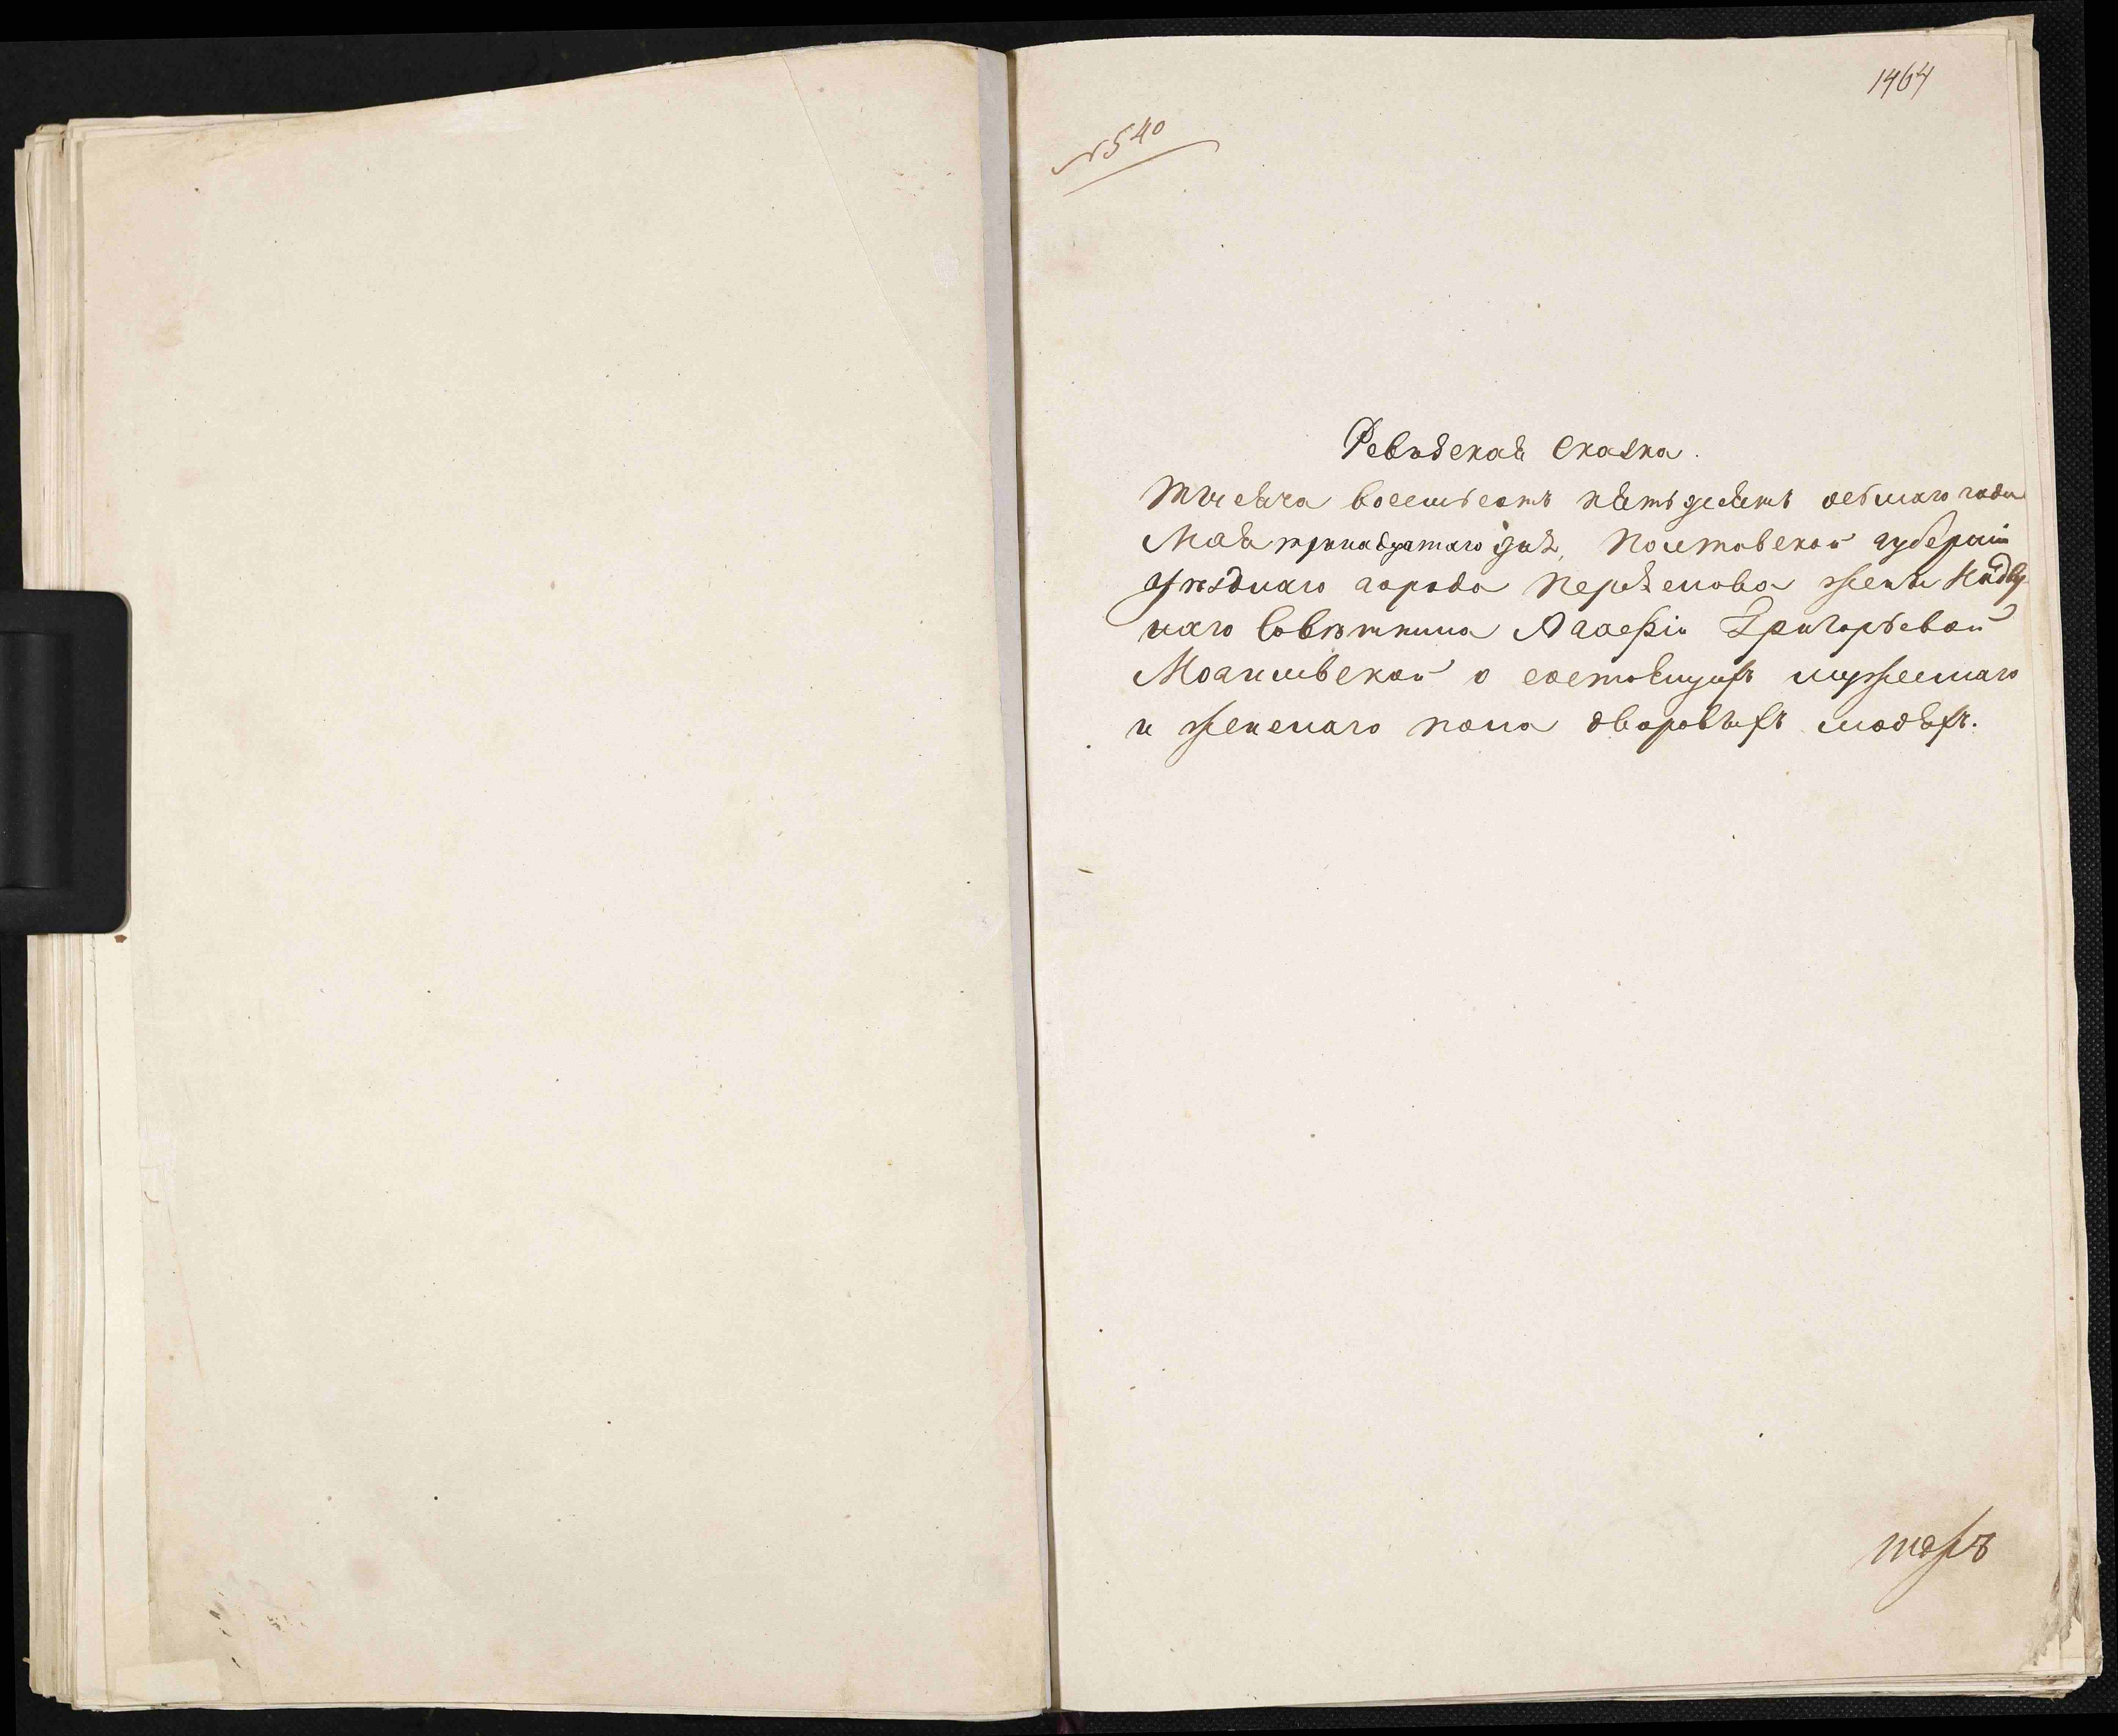 1464
№ 540
Ревизская сказка.
Тысяча восемьсотъ пятьдесятъ осьмаго года
Мая тринадцатаго дня, Полтавской губерніи
уѣзднаго города Переяслова жены Надвор
наго Совѣтника Григорьевой
Могилевской о состоящихъ мужескаго
и женскаго пола дворовыхъ людяхъ.